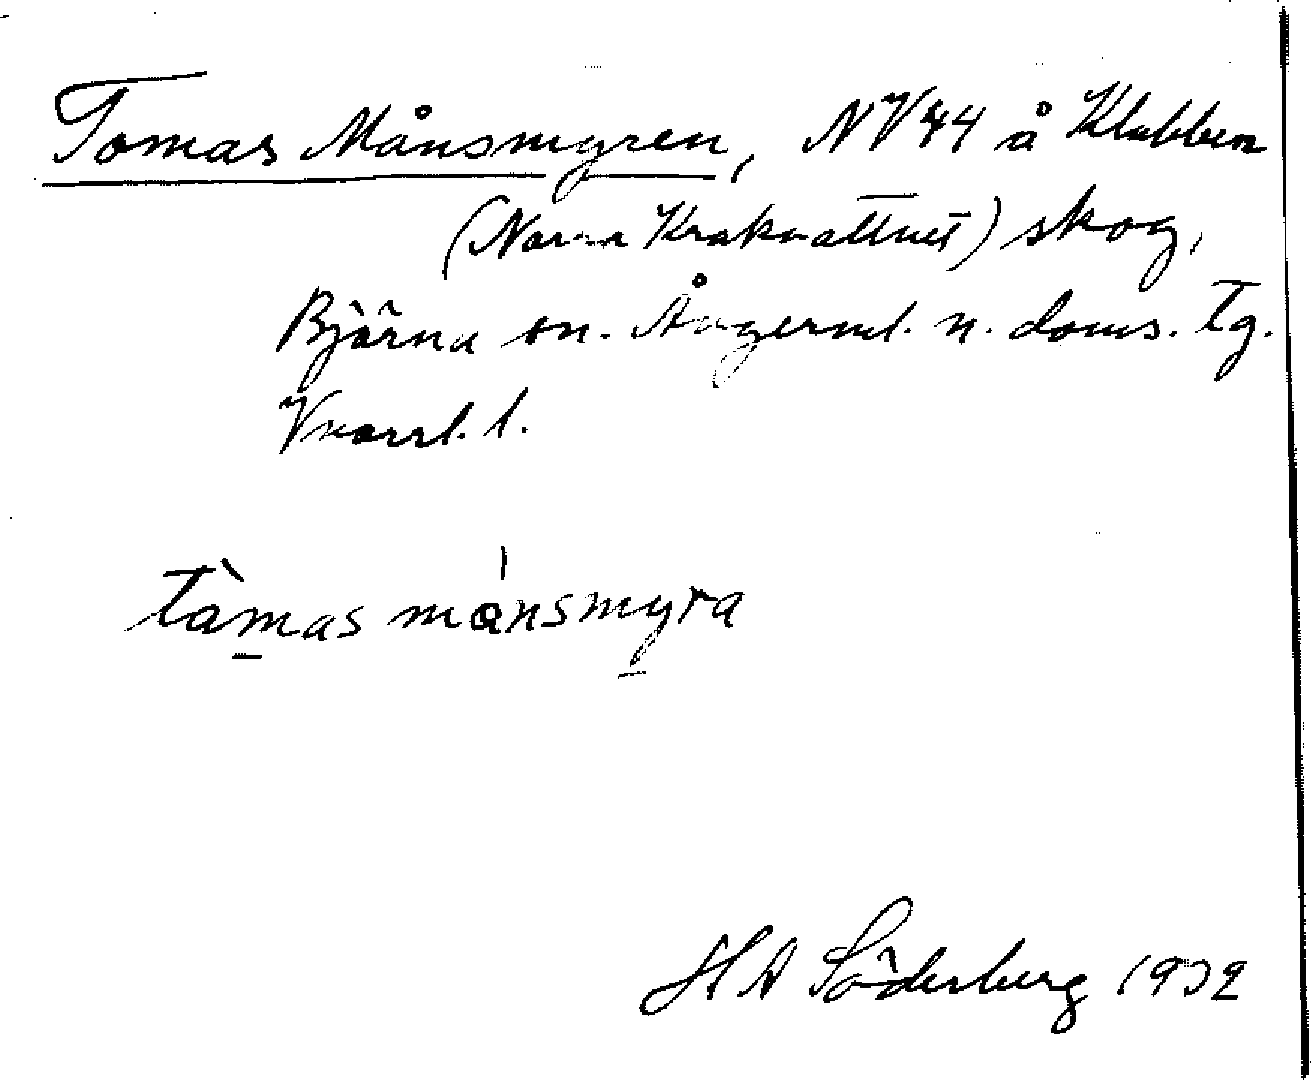 Tomas Månsmyren, NV44 å Klubben
(Norra Krakvattnet) skog,
Björna sn. Ångerml. n. doms. tg.
Vnorrl. l.
tàmas månsmyra
H A Söderberg 1932